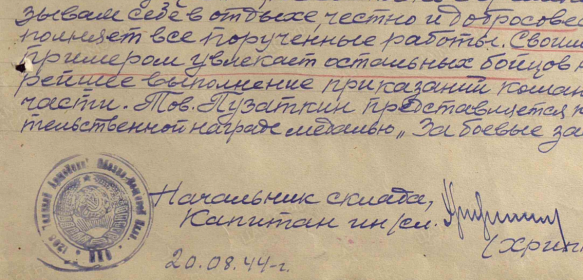 зывам себе в отдыхе честно и добросове
полняет все порученные работы. Своим
примером увлекает остальных бойцов н
рейшее выполнение приказаний коман
части. Тов. Пузаткин представляется к
тельственной награде медалью „За боевые за
Начальник склада,
Капитан ин/сл.
(хрип
20.08.44-г.